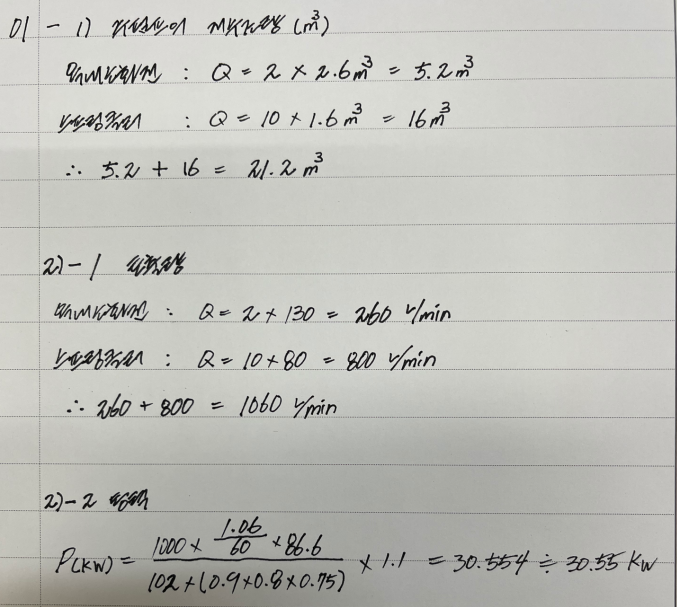 01 - 1) 지하수조의 저수량 (m³)
옥내소화전 : Q = 2 × 2.6m³ = 5.2m³
: Q = 10 × 1.6m³ = 16m³
∴ 5.2 + 16 = 21.2m³
2)-1 토출량
옥내소화전 : Q = 2 × 130 = 260 ℓ/min
: Q = 10 × 80 = 800 ℓ/min
∴ 260 + 800 = 1060 ℓ/min
2)-2
P(KW) = (1000 × 1.06/60 × 86.6) / (102 × (0.9×0.8×0.75)) × 1.1 = 30.554 ≒ 30.55 KW